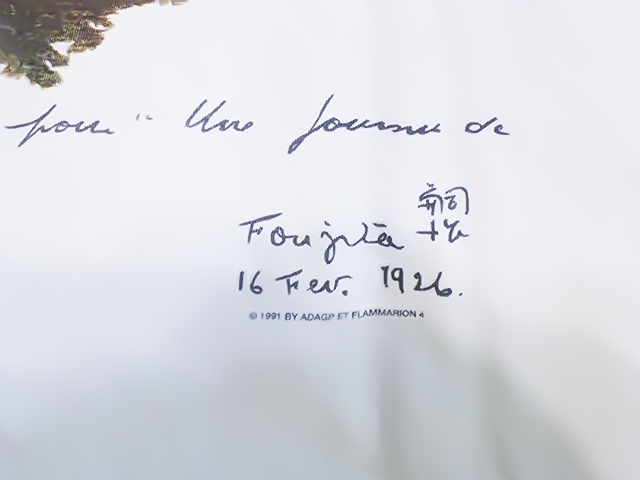 pour " Une Journée de
嗣
Foujita 治
16 Fev. 1926.
© 1991 BY ADAGP ET FLAMMARION 4